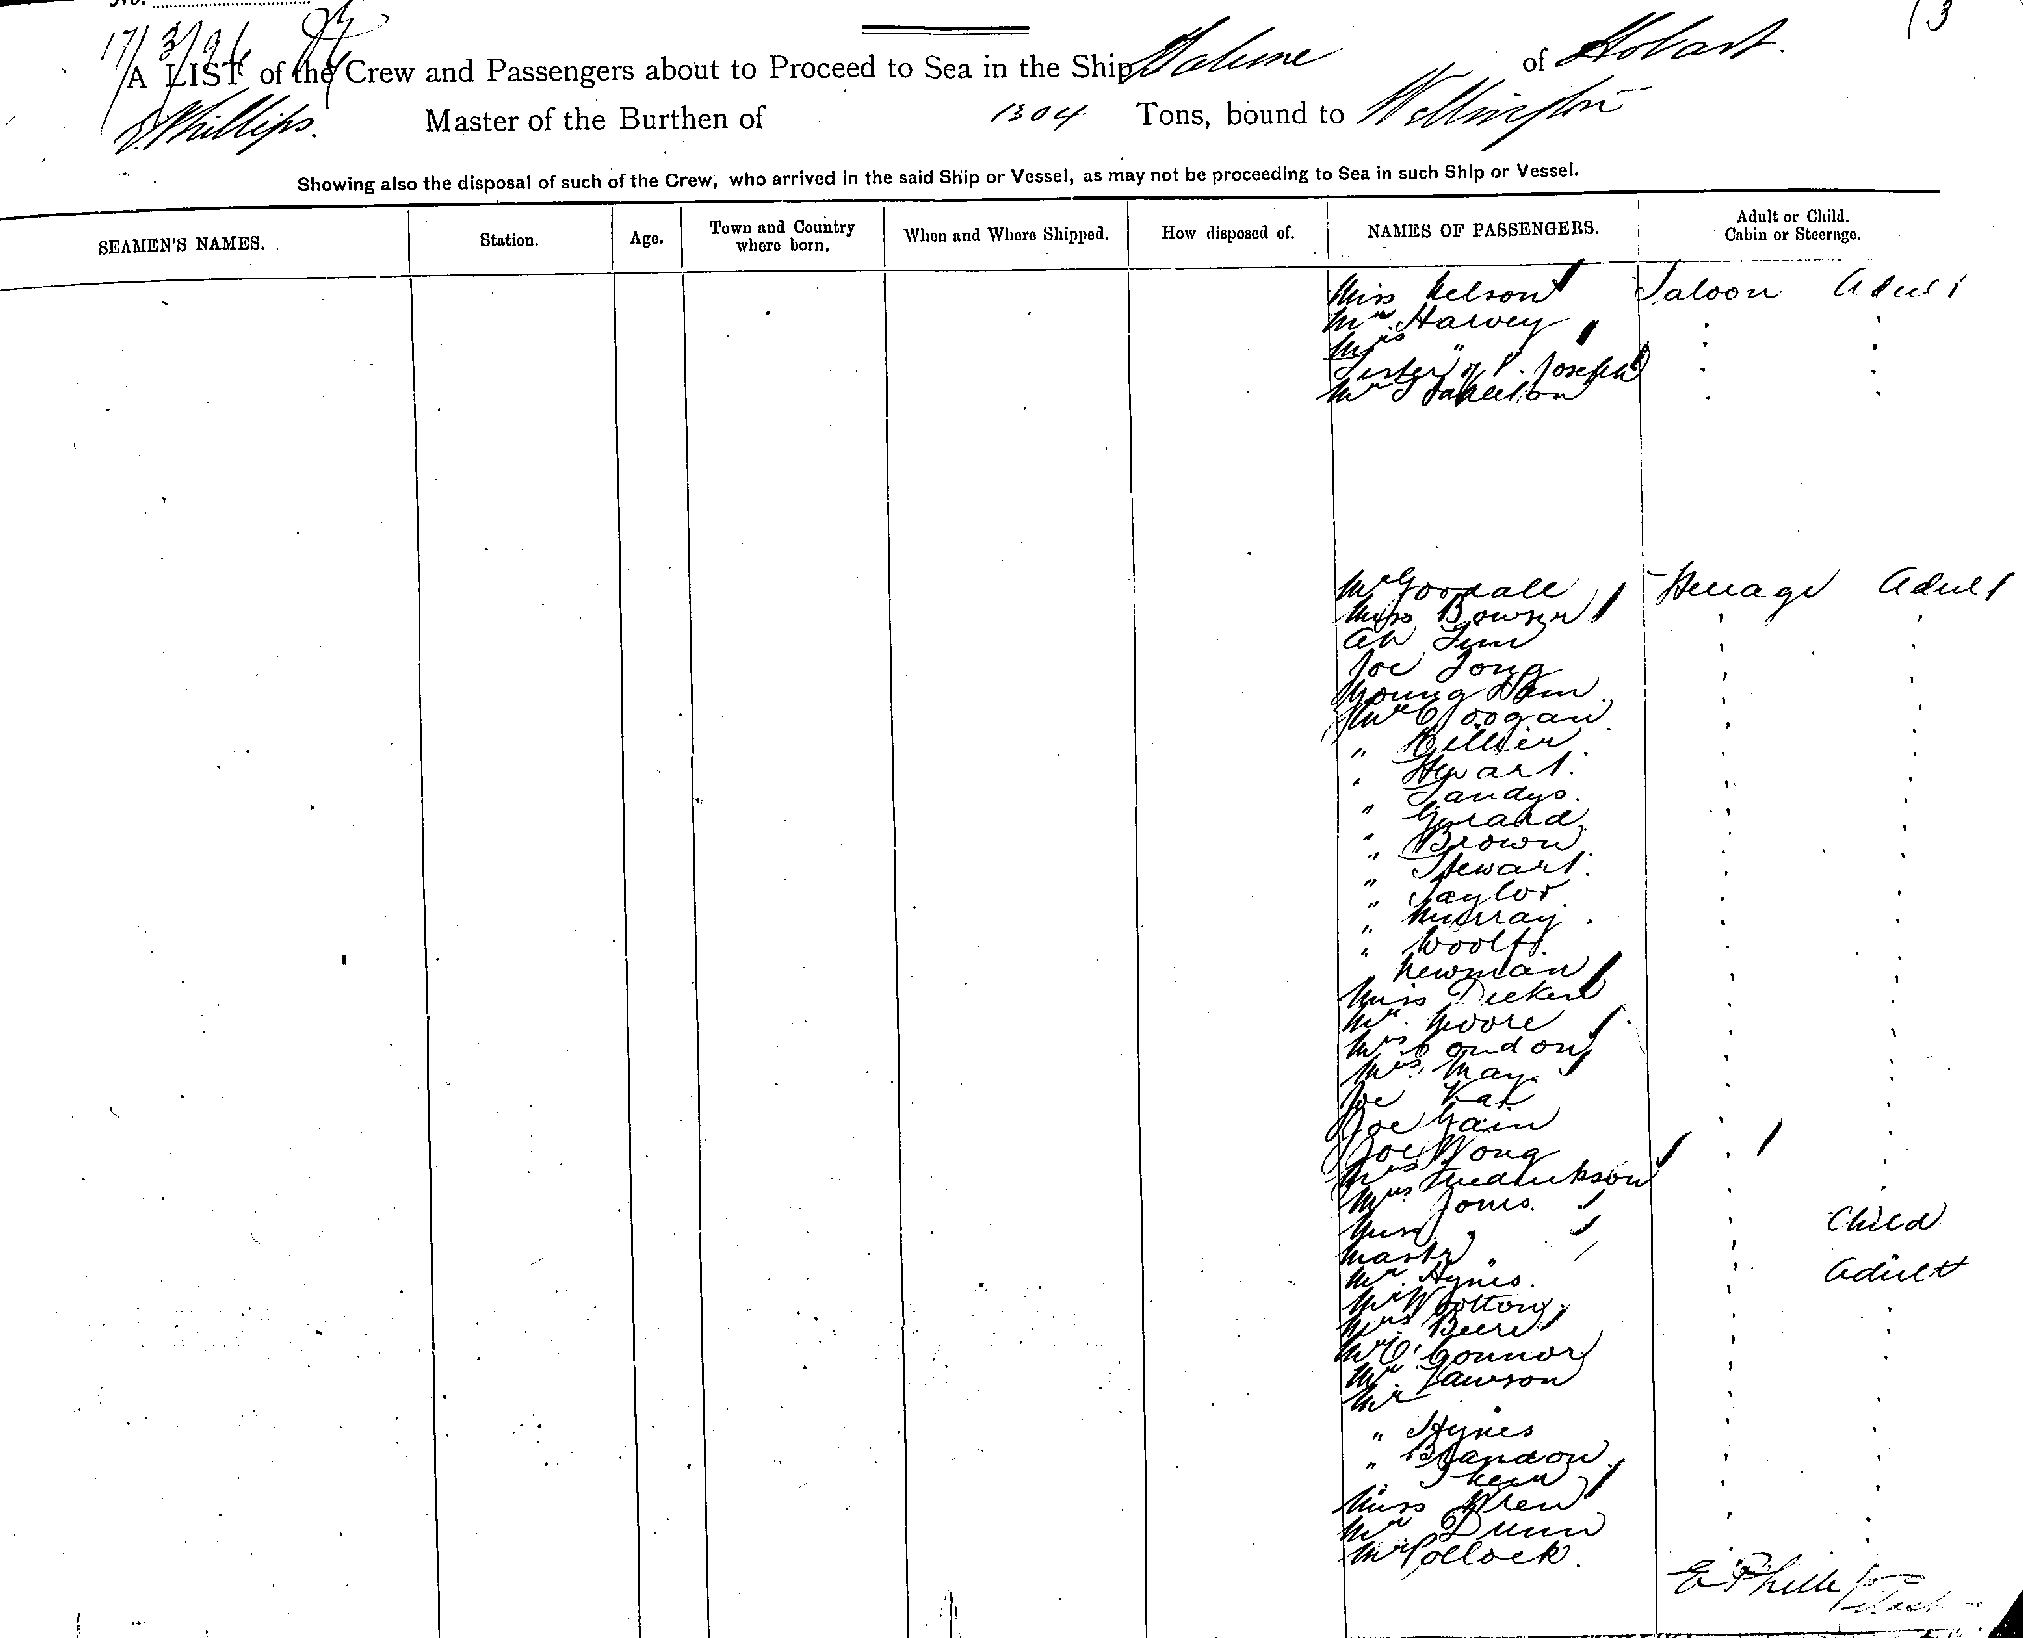 17/3/96
A LIST of the Crew and Passengers about to Proceed to Sea in the Ship Talune of Hobart.
Phillips. Master of the Burthen of 1304 Tons, bound to Wellington
Showing also the disposal of such of the Crew, who arrived in the said Ship or Vessel, as may not be proceeding to Sea in such Ship or Vessel.
SEAMEN'S NAMES. Station. Age. Town and Country where born. When and Where Shipped. How disposed of. NAMES OF PASSENGERS. Adult or Child. Cabin or Steerage.
Miss Nelson Saloon Adult
Mr Harvey
Mrs "
Sister of St. Joseph
Mr
Mr Goodall Steerage Adult
Miss Bowser
Ah
Joe
Young
Mr
" Hillier
"
" Sandys.
"
" Brown
" Stewart.
" Taylor
" Murray
" Woolf
Newman
Miss
Mr. Moore
Mrs London
Mrs May
Joe
Joe
Joe Wong
Mrs Fredrickson
Mrs Jones.
Miss " Child
Master "
Mr. Hynes. Adult
Mr Wootton
Mrs Beere
Mr O'Connor
Mr. Lawson
Mr
" Hynes
" Brandon
Miss
Mr Dunn
Mr Pollock.
E Phillips